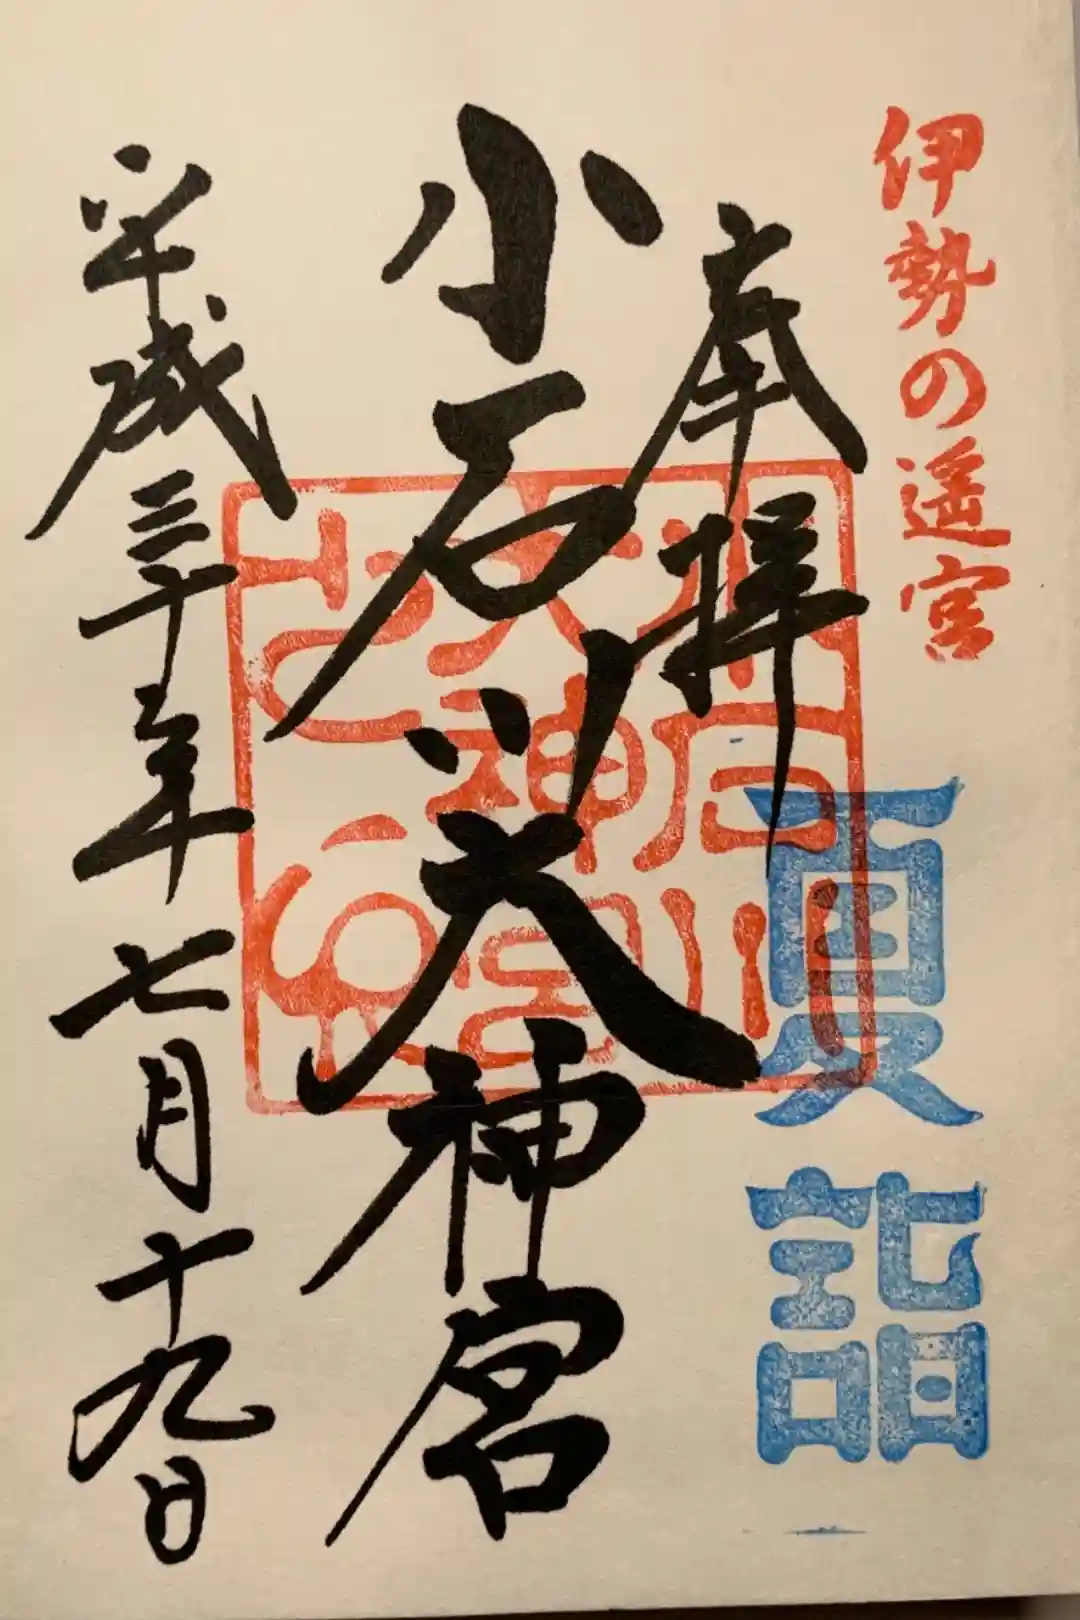 伊勢の遥宮
夏詣
奉拝
小石川大神宮
小石川
大神宮
平成三十年七月十九日